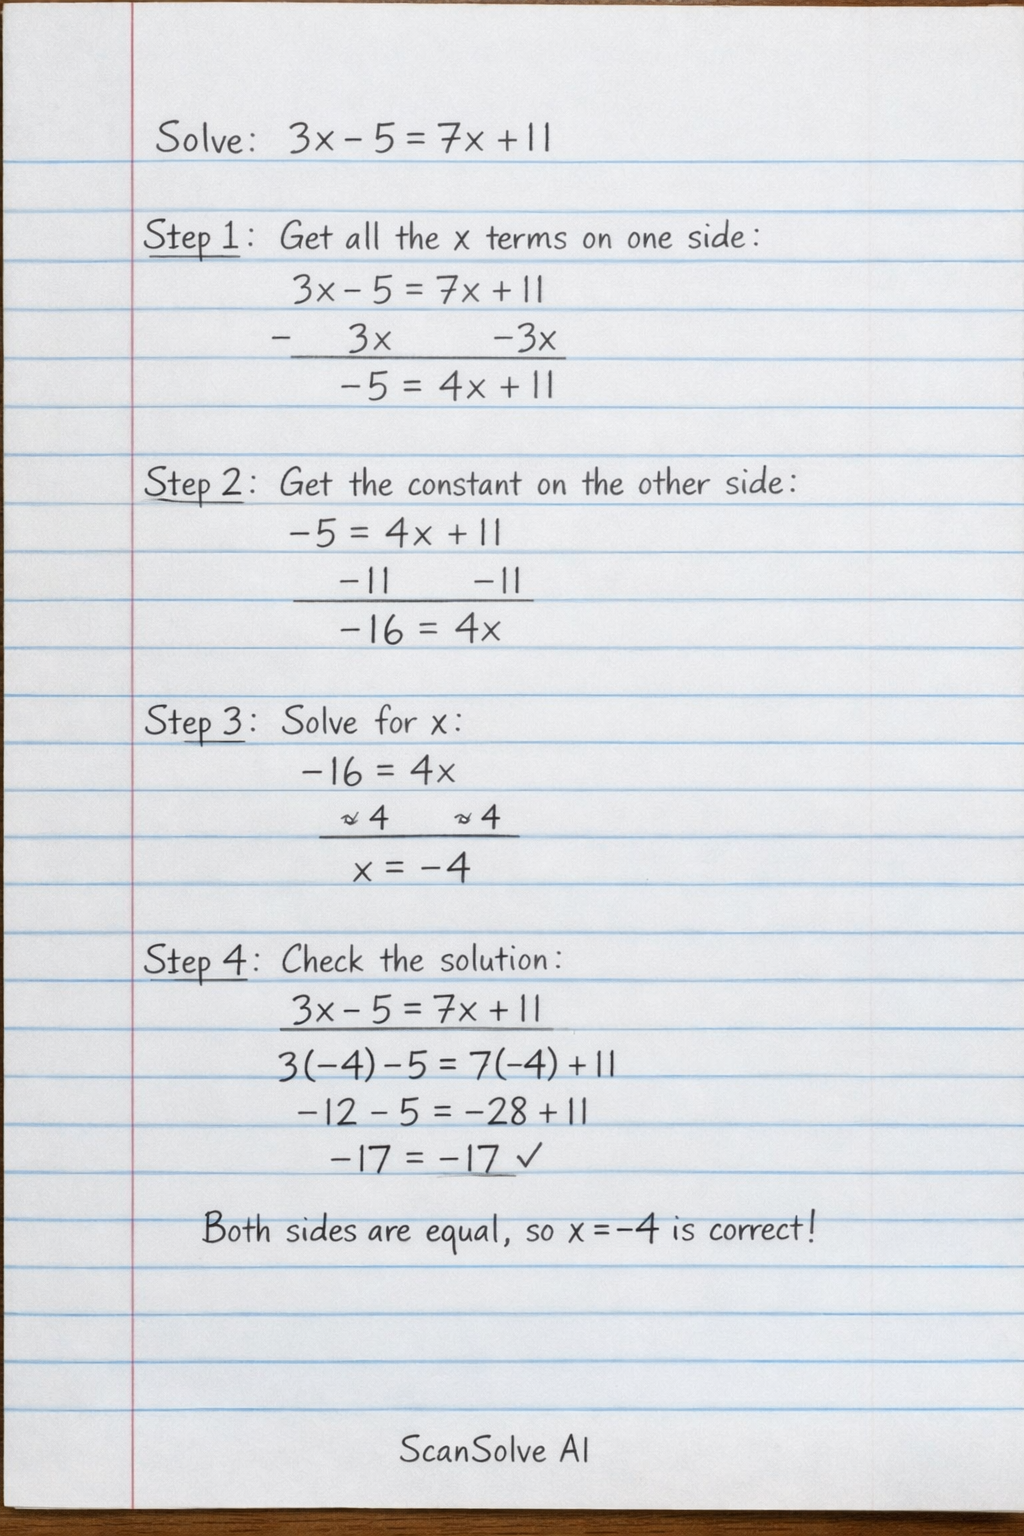 Solve: 3x - 5 = 7x + 11
Step 1: Get all the x terms on one side:
3x - 5 = 7x + 11
- 3x -3x
-5 = 4x + 11
Step 2: Get the constant on the other side:
-5 = 4x + 11
-11 -11
-16 = 4x
Step 3: Solve for x:
-16 = 4x
≈ 4 ≈ 4
x = -4
Step 4: Check the solution:
3x - 5 = 7x + 11
3(-4) - 5 = 7(-4) + 11
-12 - 5 = -28 + 11
-17 = -17 ✓
Both sides are equal, so x = -4 is correct!
ScanSolve AI